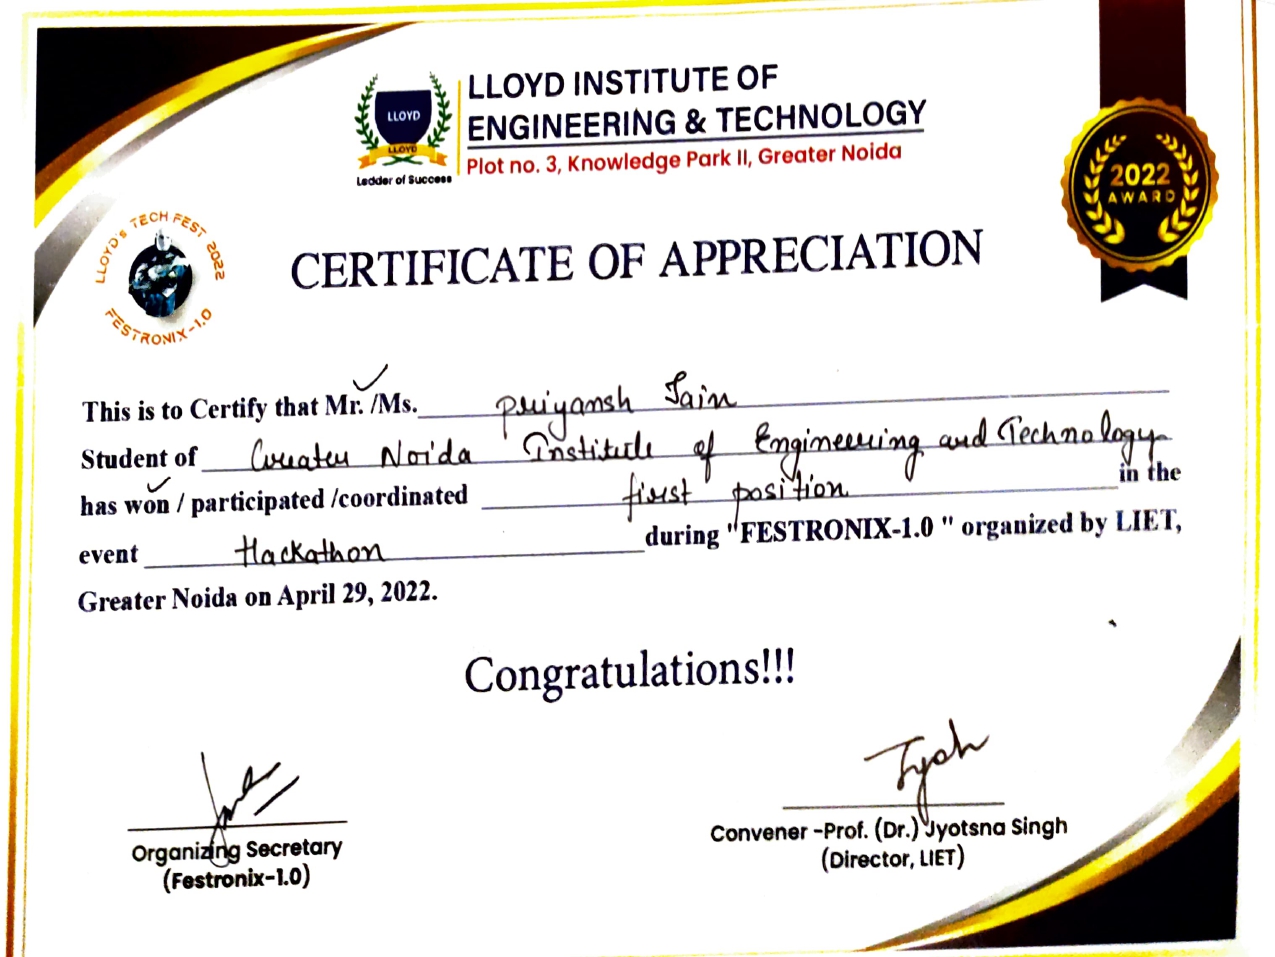 LLOYD INSTITUTE OF
ENGINEERING & TECHNOLOGY
Plot no. 3, Knowledge Park II, Greater Noida
LLOYD
LLOYD
Ladder of Success
2022
AWARD
LLOYD's TECH FEST 2022
FESTRONIX-1.0
CERTIFICATE OF APPRECIATION
This is to Certify that Mr. /Ms. Priyansh Jain
Student of Greater Noida Institute of Engineering and Technology
has won / participated /coordinated first position in the
event Hackathon during "FESTRONIX-1.0 " organized by LIET,
Greater Noida on April 29, 2022.
Congratulations!!!
Organizing Secretary
(Festronix-1.0)
Jyoh
Convener -Prof. (Dr.) Jyotsna Singh
(Director, LIET)